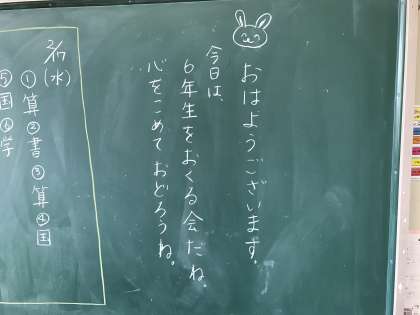 おはようございます。
今日は、
6年生をおくる会だね。
心をこめておどろうね。
2/17(水)
①算②書③算④国
⑤国⑥学